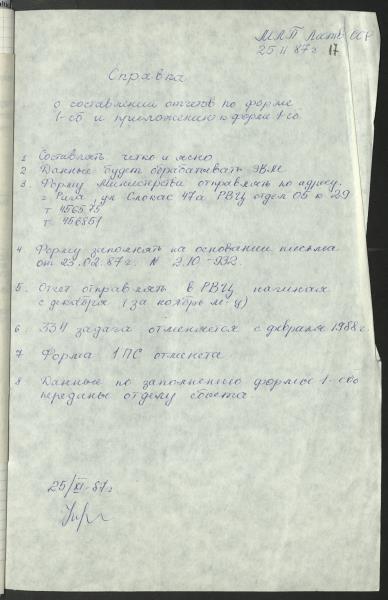 МЛП Латв ССР
25 11 87 г 17
Справка
о составлении отчетов по форме
1-сб и приложению к форме 1-сб.
1 Составлять четко и ясно
2 Данные будет обрабатывать ЭВМ
3. Форму Министерства отправлять по адресу.
г Рига, ул Слокас 47а РВЦ отдел 05 к 29
т 456575
т 456851
4 Форму заполнять на основании письма
от 23.02.87г. N 2.10-932.
5 Отчет отправлять в РВЦ начиная
с декабря (за ноябрь м-ц)
6 334 задача отменяется с февраля 1988 г.
7 Форма 1 ПС отменена
8 Данные по заполнению формы 1-сб
переданы отделу сбыта
25/XI-87г